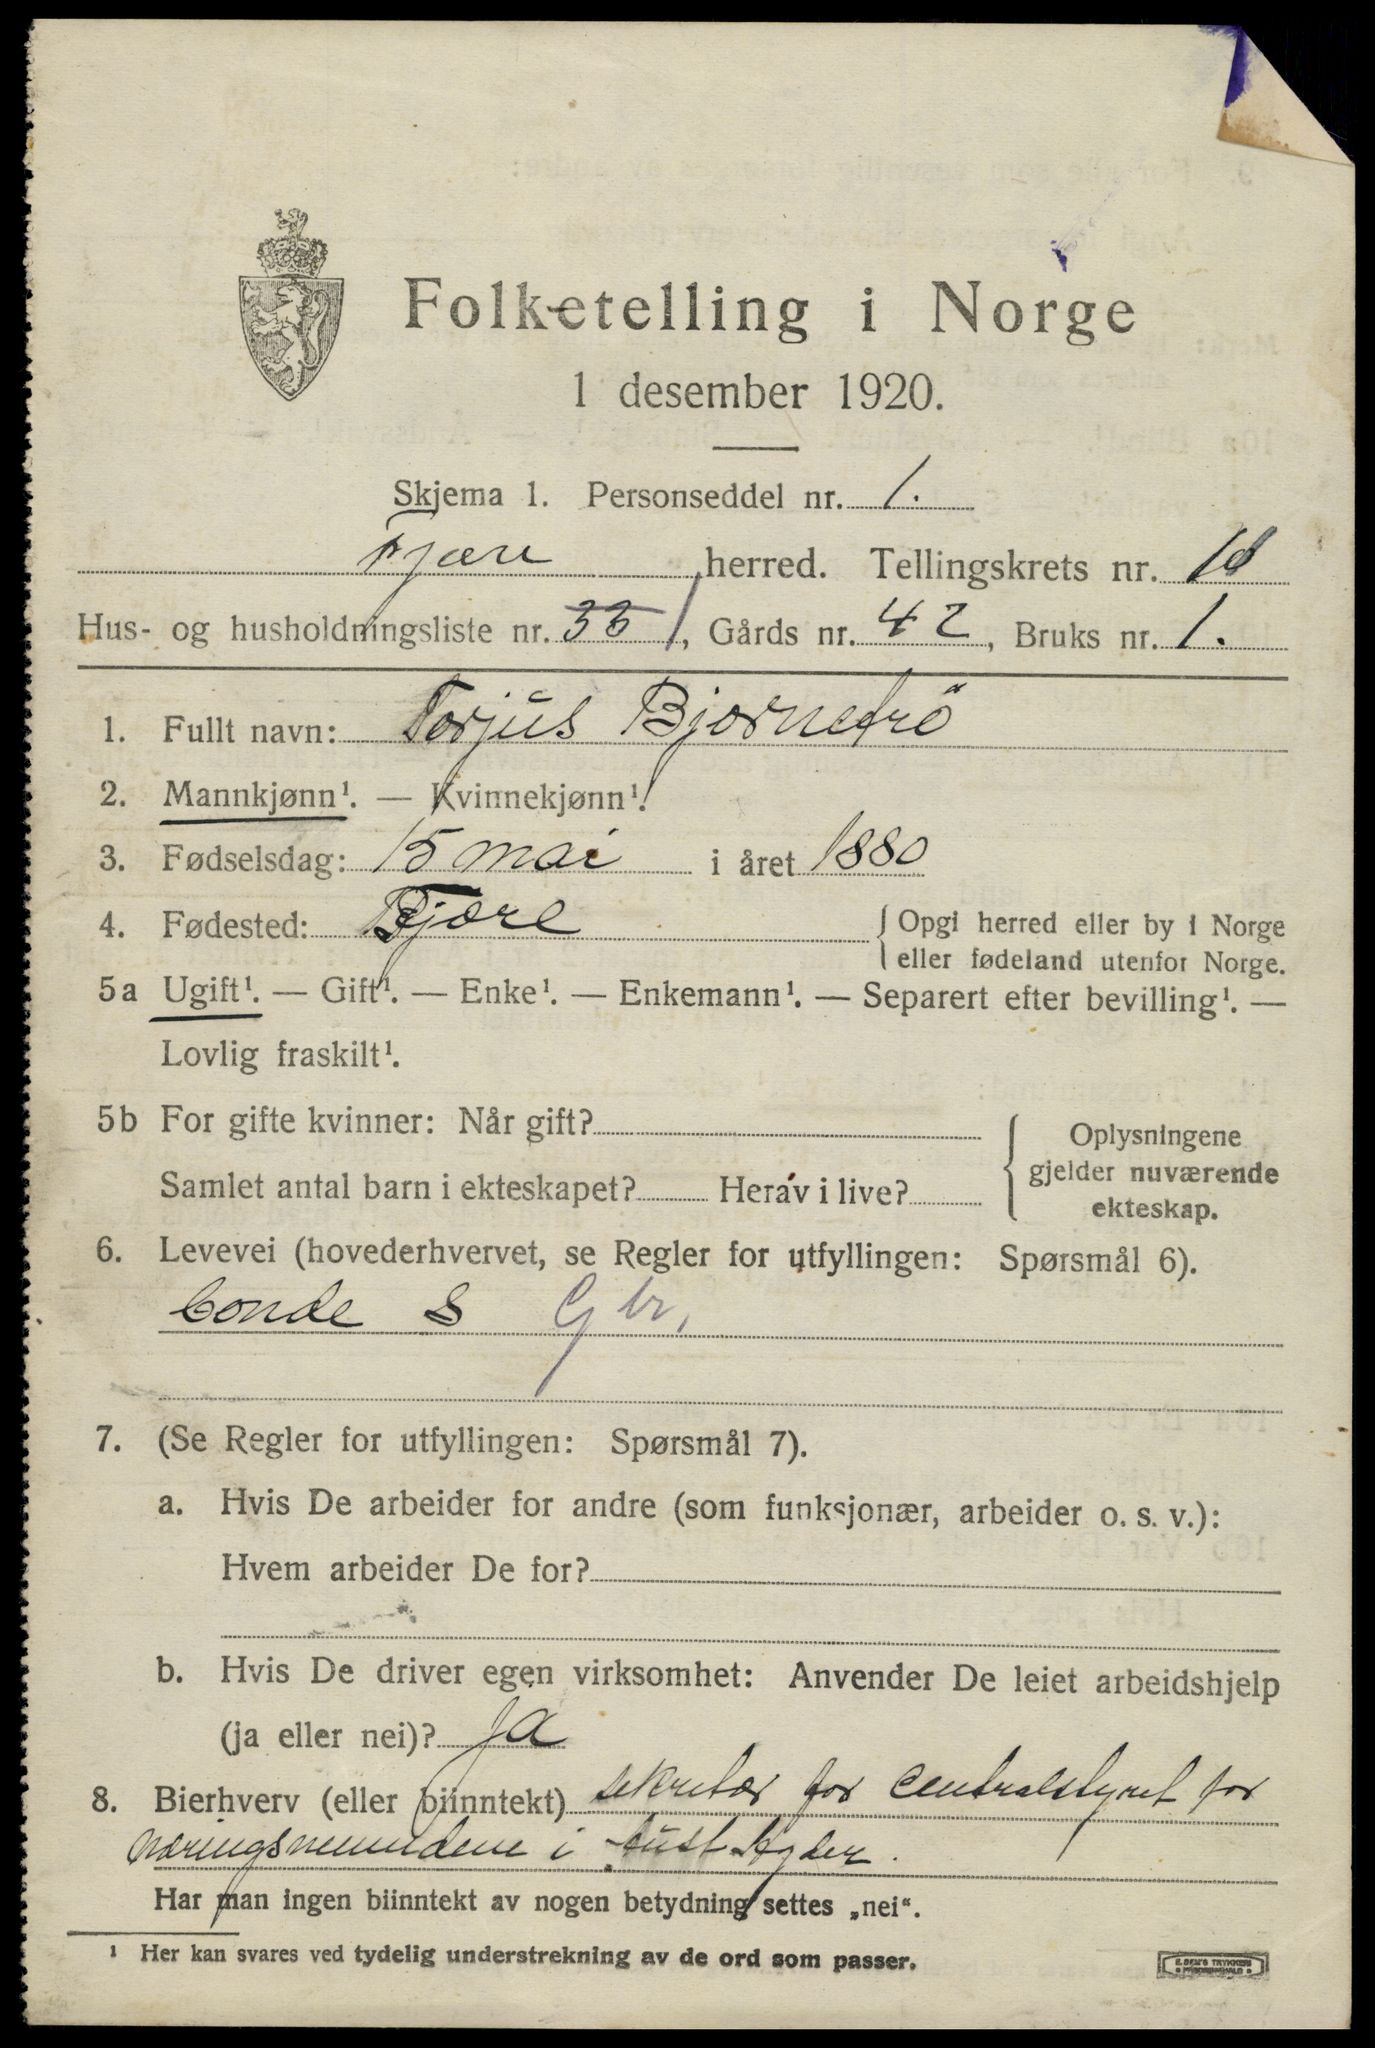 Folketelling i Norge
1 desember 1920.
Skjema 1. Personseddel nr. 1.
Fjære herred. Tellingskrets nr. 10
Hus- og husholdningsliste nr. 33 1, Gårds nr. 42, Bruks nr. 1.
1. Fullt navn: Torjus Bjørnetrö
2. Mannkjønn¹. — Kvinnekjønn¹.
3. Fødselsdag: 15 mai i året 1880
4. Fødested: Fjære { Opgi herred eller by i Norge
eller fødeland utenfor Norge.
5a Ugift¹. — Gift¹. — Enke¹. — Enkemann¹. — Separert efter bevilling¹. —
Lovlig fraskilt¹.
5b For gifte kvinner: Når gift?
Samlet antal barn i ekteskapet? Herav i live?
{ Oplysningene
gjelder nuværende
ekteskap.
6. Levevei (hovederhvervet, se Regler for utfyllingen: Spørsmål 6).
bonde S Gbr,
7. (Se Regler for utfyllingen: Spørsmål 7).
a. Hvis De arbeider for andre (som funksjonær, arbeider o. s. v.):
Hvem arbeider De for?
b. Hvis De driver egen virksomhet: Anvender De leiet arbeidshjelp
(ja eller nei)? Ja
8. Bierhverv (eller biinntekt) sekretær for centralstyret for
næringsnemndene i Aust-Agder.
Har man ingen biinntekt av nogen betydning settes „nei“.
¹ Her kan svares ved tydelig understrekning av de ord som passer.